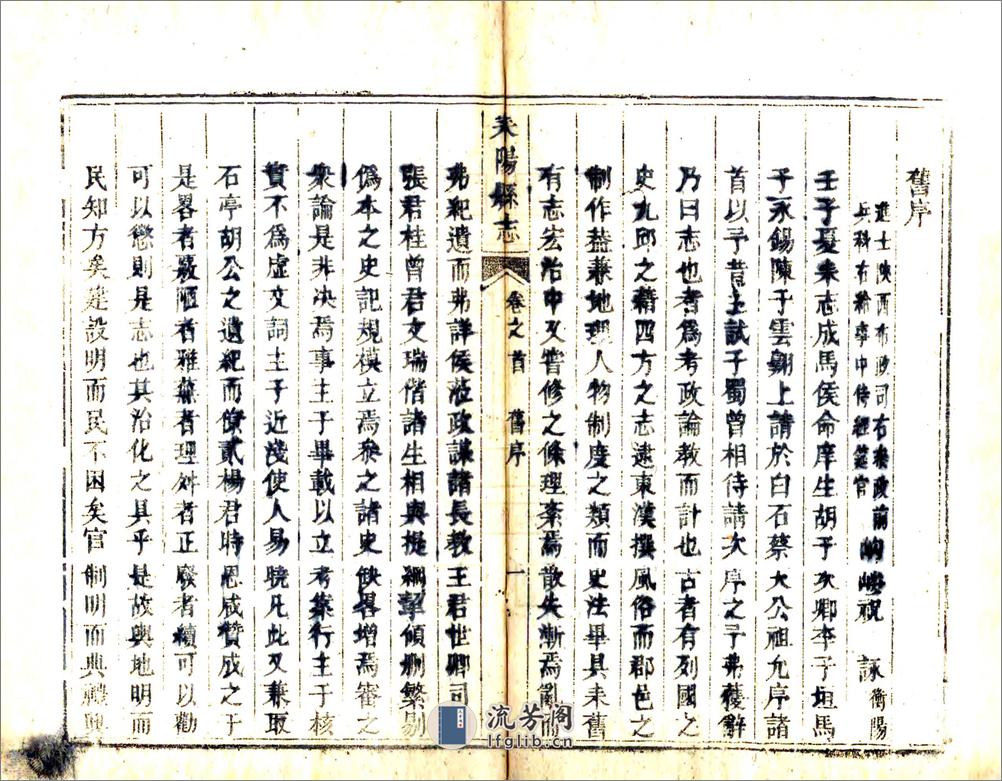 舊序
進士陝西布政司右參政前
兵科右給事中侍經筵官
岣嶁祝詠衡陽
壬子夏耒志成馬侯命庠生胡子次卿李子垣馬
子永錫陳子雲翱上請於白石蔡大公祖允序諸
首以予昔主試于蜀曾相侍請次序之予弗獲辭
乃曰志也者為考政論教而計也古者有列國之
史九邱之籍四方之志逮東漢撰風俗而郡邑之
制作葢兼地理人物制度之類而史法畢具耒舊
有志宏治中又嘗修之條理紊焉散失漸焉亂而
耒陽縣志
卷之首
舊序
一
弗紀遺而弗詳侯蒞政謀諸長教王君世卿司
張君桂曾君文瑞偕諸生相與提綱挈領删繁剔
僞本之史記規模立焉參之諸史缺畧增焉審之
衆論是非决焉事主于畢載以立考案行主于核
實不為虛文詞主于近淺使人易曉凡此又兼取
石亭胡公之遺紀而僚貳楊君時恩咸贊成之于
是畧者覈陋者雅蕪者理外者正廢者續可以勸
可以懲則是志也其治化之具乎是故輿地明而
民知方矣建設明而民不困矣官制明而典禮興
流芳阁
lfglib.cn